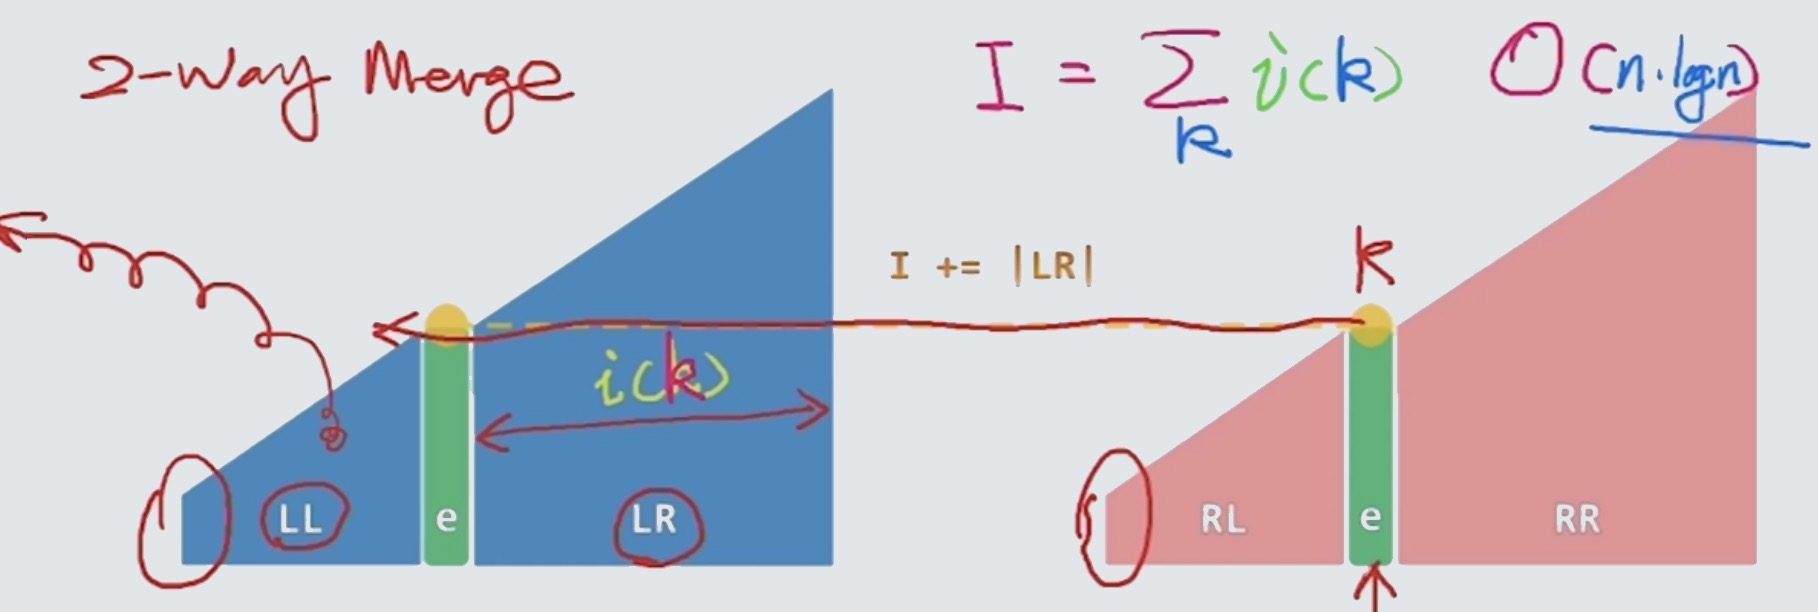 2-Way Merge
I = Σ i(k) O(n·logn)
k
I += |LR|
k
i(k)
LL e LR RL e RR